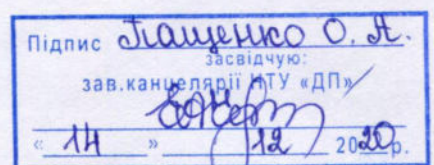 Підпис Пащенко О. А.
засвідчую:
зав.канцелярії НТУ «ДП»
« 14 » 12 2020р.